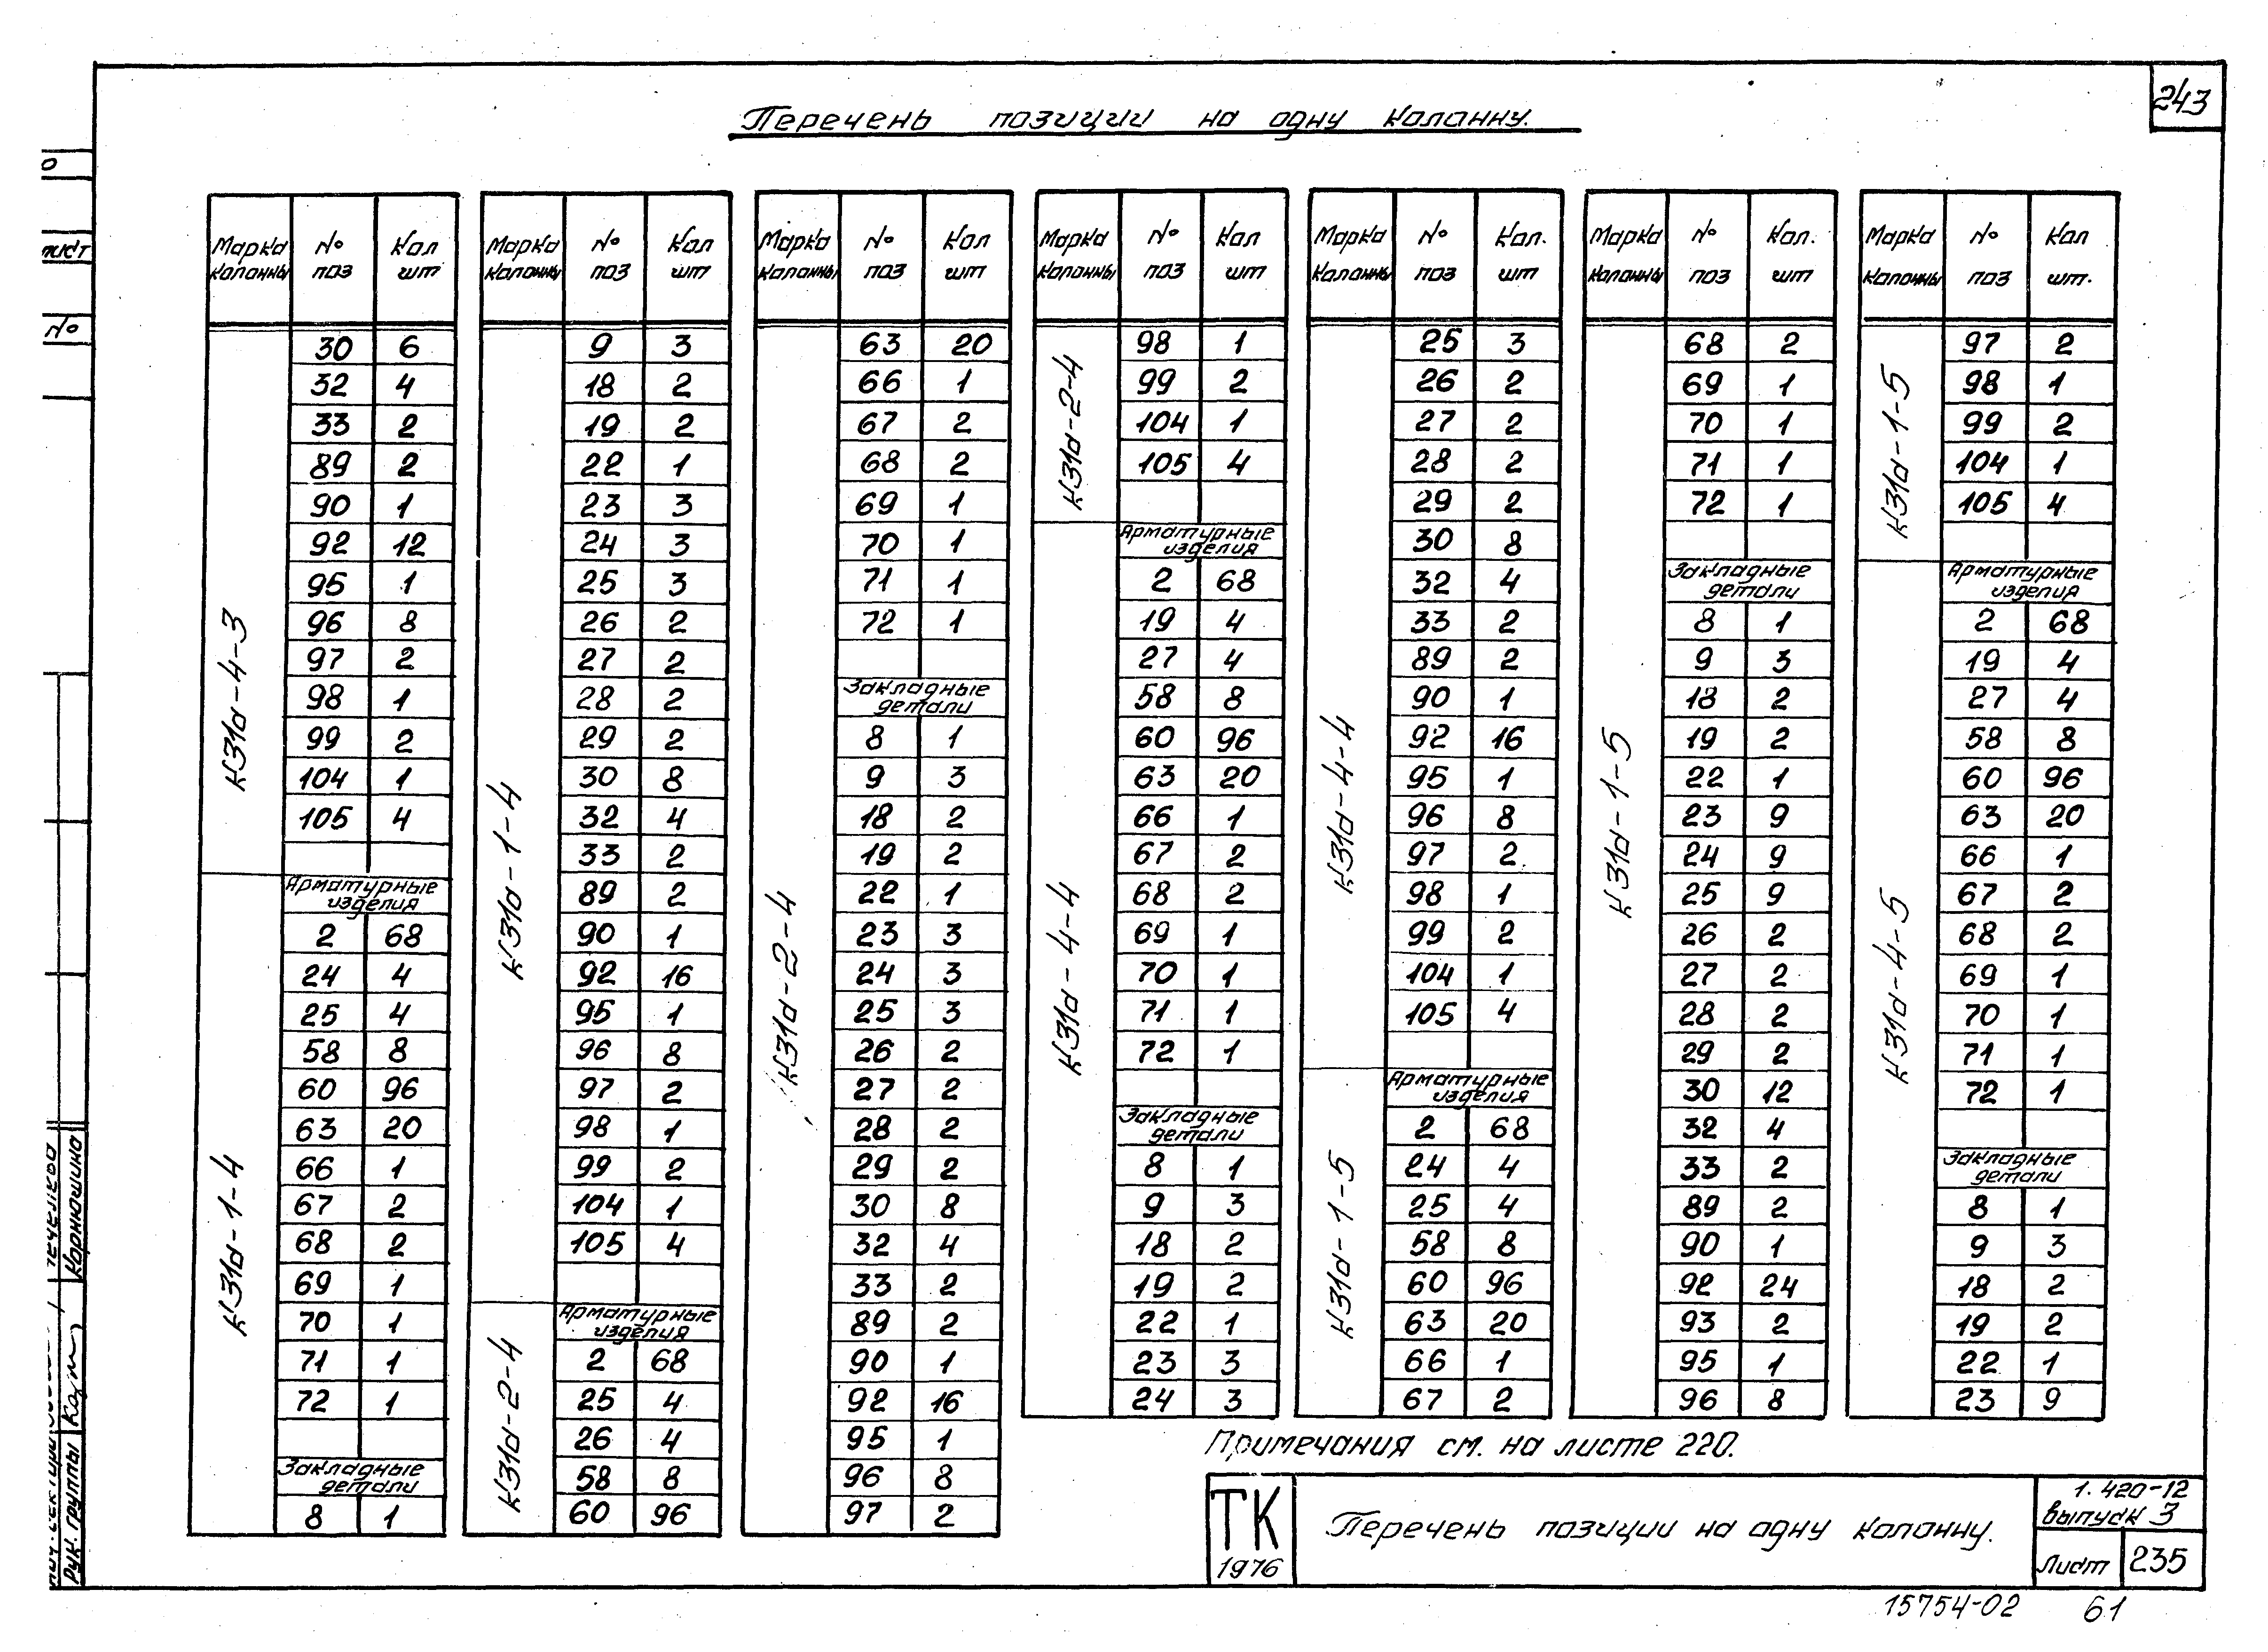 243
Перечень позиции на одну колонну.
Марка колонны № поз Кол шт
К31а-4-3
30 6
32 4
33 2
89 2
90 1
92 12
95 1
96 8
97 2
98 1
99 2
104 1
105 4
К31а-1-4
Арматурные
изделия
2 68
24 4
25 4
58 8
60 96
63 20
66 1
67 2
68 2
69 1
70 1
71 1
72 1
Закладные
детали
8 1
Марка колонны № поз Кол шт
К31а-1-4
9 3
18 2
19 2
22 1
23 3
24 3
25 3
26 2
27 2
28 2
29 2
30 8
32 4
33 2
89 2
90 1
92 16
95 1
96 8
97 2
98 1
99 2
104 1
105 4
К31а-2-4
Арматурные
изделия
2 68
25 4
26 4
58 8
60 96
Марка колонны № поз Кол шт
К31а-2-4
63 20
66 1
67 2
68 2
69 1
70 1
71 1
72 1
Закладные
детали
8 1
9 3
18 2
19 2
22 1
23 3
24 3
25 3
26 2
27 2
28 2
29 2
30 8
32 4
33 2
89 2
90 1
92 16
95 1
96 8
97 2
Марка колонны № поз Кол шт
К31а-2-4
98 1
99 2
104 1
105 4
К31а-4-4
Арматурные
изделия
2 68
19 4
27 4
58 8
60 96
63 20
66 1
67 2
68 2
69 1
70 1
71 1
72 1
Закладные
детали
8 1
9 3
18 2
19 2
22 1
23 3
24 3
Марка колонны № поз Кол. шт
К31а-4-4
25 3
26 2
27 2
28 2
29 2
30 8
32 4
33 2
89 2
90 1
92 16
95 1
96 8
97 2
98 1
99 2
104 1
105 4
К31а-1-5
Арматурные
изделия
2 68
24 4
25 4
58 8
60 96
63 20
66 1
67 2
Марка колонны № поз Кол. шт
К31а-1-5
68 2
69 1
70 1
71 1
72 1
Закладные
детали
8 1
9 3
18 2
19 2
22 1
23 9
24 9
25 9
26 2
27 2
28 2
29 2
30 12
32 4
33 2
89 2
90 1
92 24
93 2
95 1
96 8
Марка колонны № поз Кол шт.
К31а-1-5
97 2
98 1
99 2
104 1
105 4
К31а-4-5
Арматурные
изделия
2 68
19 4
27 4
58 8
60 96
63 20
66 1
67 2
68 2
69 1
70 1
71 1
72 1
Закладные
детали
8 1
9 3
18 2
19 2
22 1
23 9
Примечания см. на листе 220.
ТК
1976
Перечень позиции на одну колонну.
1.420-12
выпуск 3
Лист 235
15754-02 61
№
Рук. группы
Корнюшина